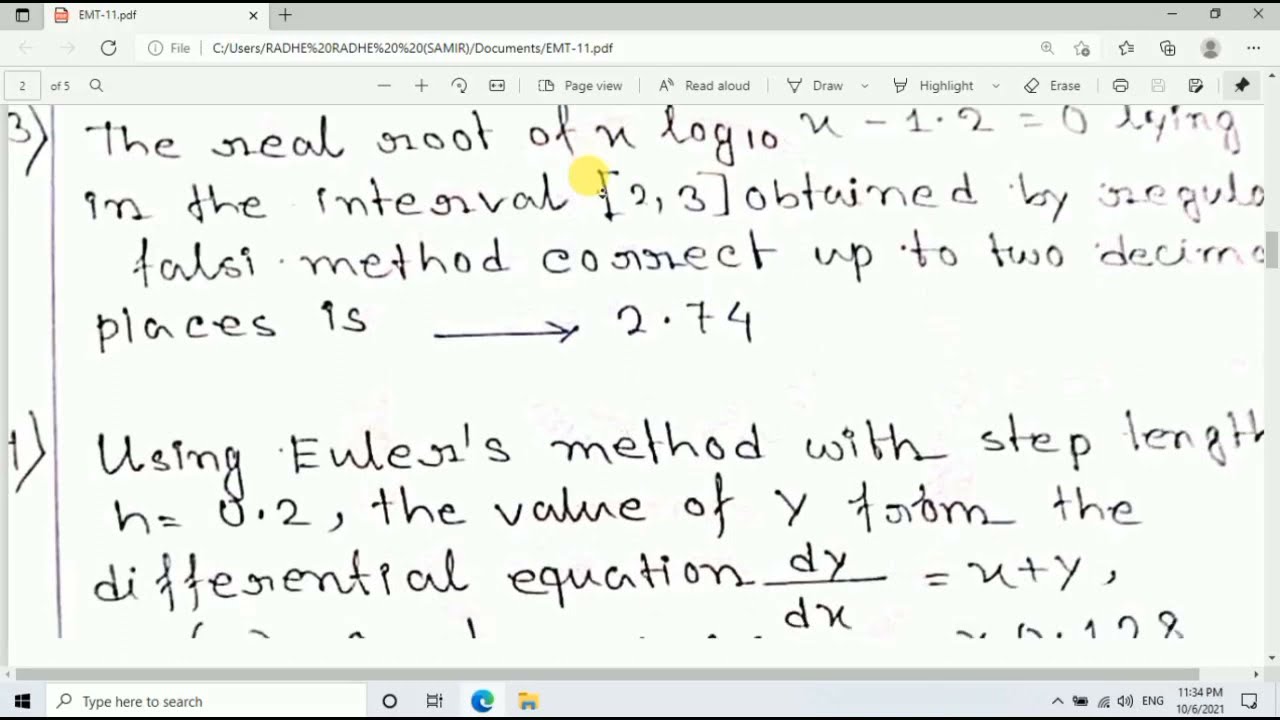 EMT-11.pdf
File C:/Users/RADHE%20RADHE%20%20(SAMIR)/Documents/EMT-11.pdf
2 of 5 Page view Read aloud Draw Highlight Erase
3) The real root of x log10 x - 1.2 = 0 lying
in the interval [2, 3] obtained by regula
falsi method correct up to two decima
places is → 2.74
Using Euler's method with step length
h = 0.2, the value of y from the
differential equation dy/dx = x+y,
Type here to search
ENG 11:34 PM
10/6/2021